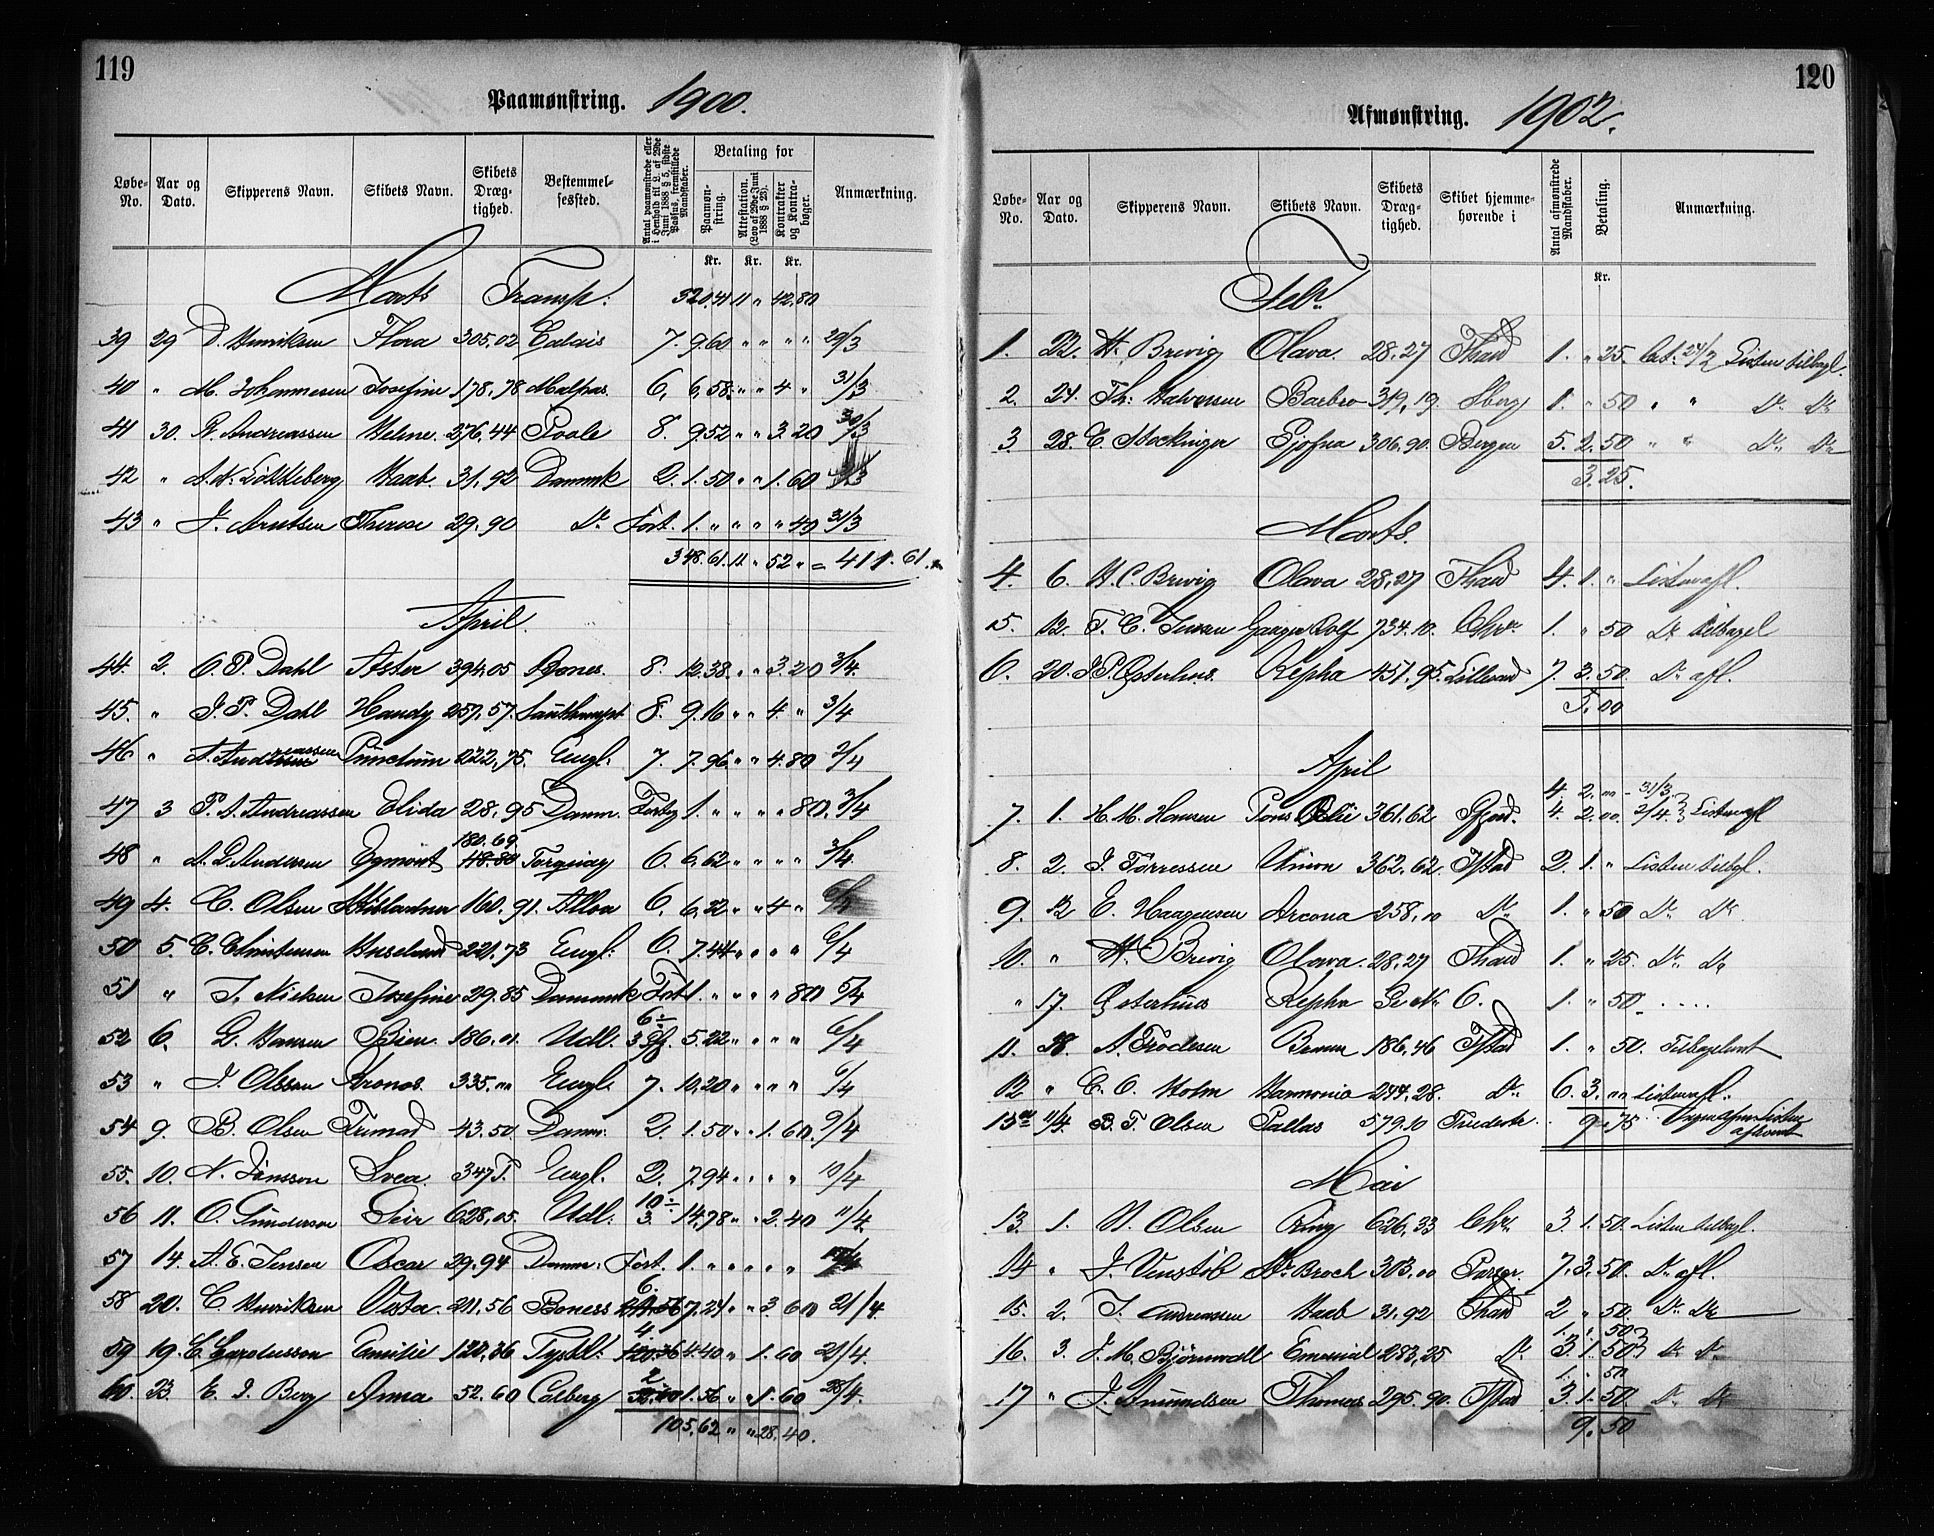 119
Paamønstring. 1900.
Løbe-No. Aar og Dato. Skipperens Navn. Skibets Navn. Skibets Dræg-tighed. Bestemmel-sessted. Antal paamønstrede eller i Henhold til L. af 29de Juni 1888 § 5, sidste Passus, fremstillede Mandskaber. Betaling for Paamøn-string. Attestation. (Lov af 29de Juni 1888 § 23). Kontrakter og Kontra-bøger. Anmærkning.
Kr. Kr. Kr.
Marts Transp: 320,41 11 " 42,80
39 29 D. Henriksen Flora 305,02 Calais 7. 9.60 " " " " 29/3
40 " M. Johannesen Josefine 178,78 Malpas 6, 6,58 " " 4 " 31/3
41 30. Andreassen Helene 276,44 Poole 8. 952 " " 3.20 30/3
42 " Løkkeberg Haab 31,92 Danmk 2. 1.50 " " 1.60
43 " J. Arntsen Therese 29.90 Do Fort. 1. " " " " 40 31/3
348.61. 11. " 52 " = 411.61.
April.
44. 2. O. P. Dahl Aster 394,05 Bones. 8. 12.38 " " 3.20 3/4.
45. " J. P. Dahl Handy 257,57. Southampt 8. 9.16 " " 4. " 3/4
46 " A. Andreassen Punctum 222,75. Engl: 7. 7.96 " " 4.80 3/4
47 3 P. A. Andreassen Elida 28,95 Danm. 1. " " " " 80, 3/4
48 " Andersen Egmont 180.69 Torquay 6. 6.62 " " " " 3/4
49 4. C. Olsen 160,91. Alloa 6, 6,22 " " 4 "
50 5. C. Christensen 221.73 Engl: 6. 7.44 " " " " 6/4
51 " J. Nielsen Josefine 29.85 Danmark Fort 1. " " " " 80 5/4
52 6. L. Hansen Bien 186,01. Udl. 5.22 " " " " 6/4
53 " J. Olsson Kronos. 335," Engl. 7. 10,20 " " " " 6/4
54 9. B. Olsen 43.50 Danm: 2. 1.50 " " 1.60. 9/4
55. 10. N. Jönsson Svea. 347 T. Engl. 2. 7.94 " " " " 10/4
56 11. O. Gundersen Seir 628,05. Udl: 10 3. 14,78 " " 2.40 11/4.
57 14. A. E. Jensen Oscar 29.94 Danm: Fort. 1. " " " " "
58 20. C. Henriksen Vesta 211,56 Boness 6. 7.24 " " 3 60 21/4.
59 19. C. Carolusson Emilie 120,36 Tyskl: 4. 4.40 " 1.60 21/4.
60. 23. E. J. Berg Anna 52.60 Carlberg 2 1.56 " 1.60
105,62 " " 28.40.
120
Afmønstring. 1902.
Løbe-No. Aar og Dato. Skipperens Navn. Skibets Navn. Skibets Dræg-tighed. Skibet hjemme-hørende i Antal afmønstrede Mandskaber. Betaling. Anmærkning.
Kr.
Febr.
1. 22. H. Brevig Olava. 28,27 Thand 1. " 25. Listen tilbagl.
2. 24. Th: Halvorsen Barbro 319,19. Sberg 1. " 50 " " Do Do
3 28. E. Stockinger Gjøfna 306,90. Bergen 5. 2.50 " " Do Do
3.25.
Marts.
4. 6. H. C. Brevig Olava 28,27 Thand 4. 1. " Listenafl.
5. 12. T. C. Jensen Ganger Rolf 734.10. Chr. 1. " 50 Do tilbagel
6. 20. J. P. Osterhus. Kepha 451.95. Lillesand 7. 3.50. Do afl.
5.00
April
4. 2. " - 31/3
7. 1. H. M. Hansen Pons Ælii 361,62 Gfjord. 4. 2.00. 2/4 Listenafl
8. 2. J. Törressen Union 362,62. Tstad 2. 1. " Listen tilbgl.
9. 12 E. Haagensen Arcona 258," Do 1. " 50 Do Do
10. " H. Brevig Olava. 28,27 Thand 1. " 25. Do Do
" 17. Østerhus Kepha Se No 6. 1. " 50. . . . .
11. A. Frödesen 186,46 Tstad 1. " 50. Tilbagelevt
12 " C. O. Holm Harmonia 244.28. Do 6. 3. " Listenafl.
11/4. B. T. Olsen Pallas 579.10 Frederik. 9.75
Mai
13. 1. N. Olsen Ring 626,33 Chr. 3. 1.50. Listen tilbgl.
14 " J. Venstöb St Broch 303," Porsgr. 7. 3.50. Do afl.
15. 2. J. Andreassen Haab 31,92 Thand 2 " 50. Do Do
1. " 50
16. 3. J. M. Björnvall Emanuel 283,25 Do 3. 1.50 Do Do
1. " 50
17 " J. Amundsen Thomas 295.90. Tstad 3. 1.50. Do Do
9.50